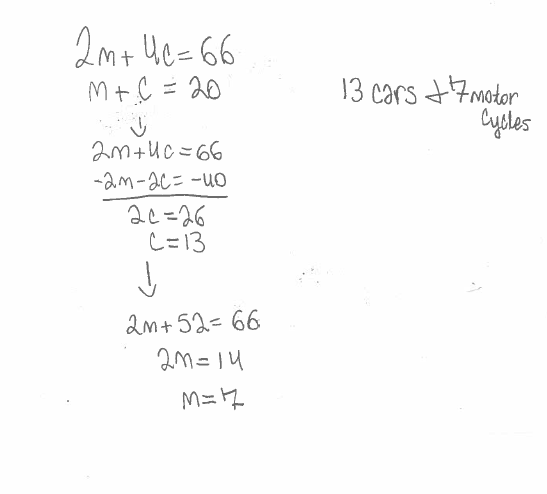 2m + 4c = 66
m + c = 20
↓
2m + 4c = 66
-2m - 2c = -40
2c = 26
c = 13
↓
2m + 52 = 66
2m = 14
m = 7
13 cars + 7 motor
cycles